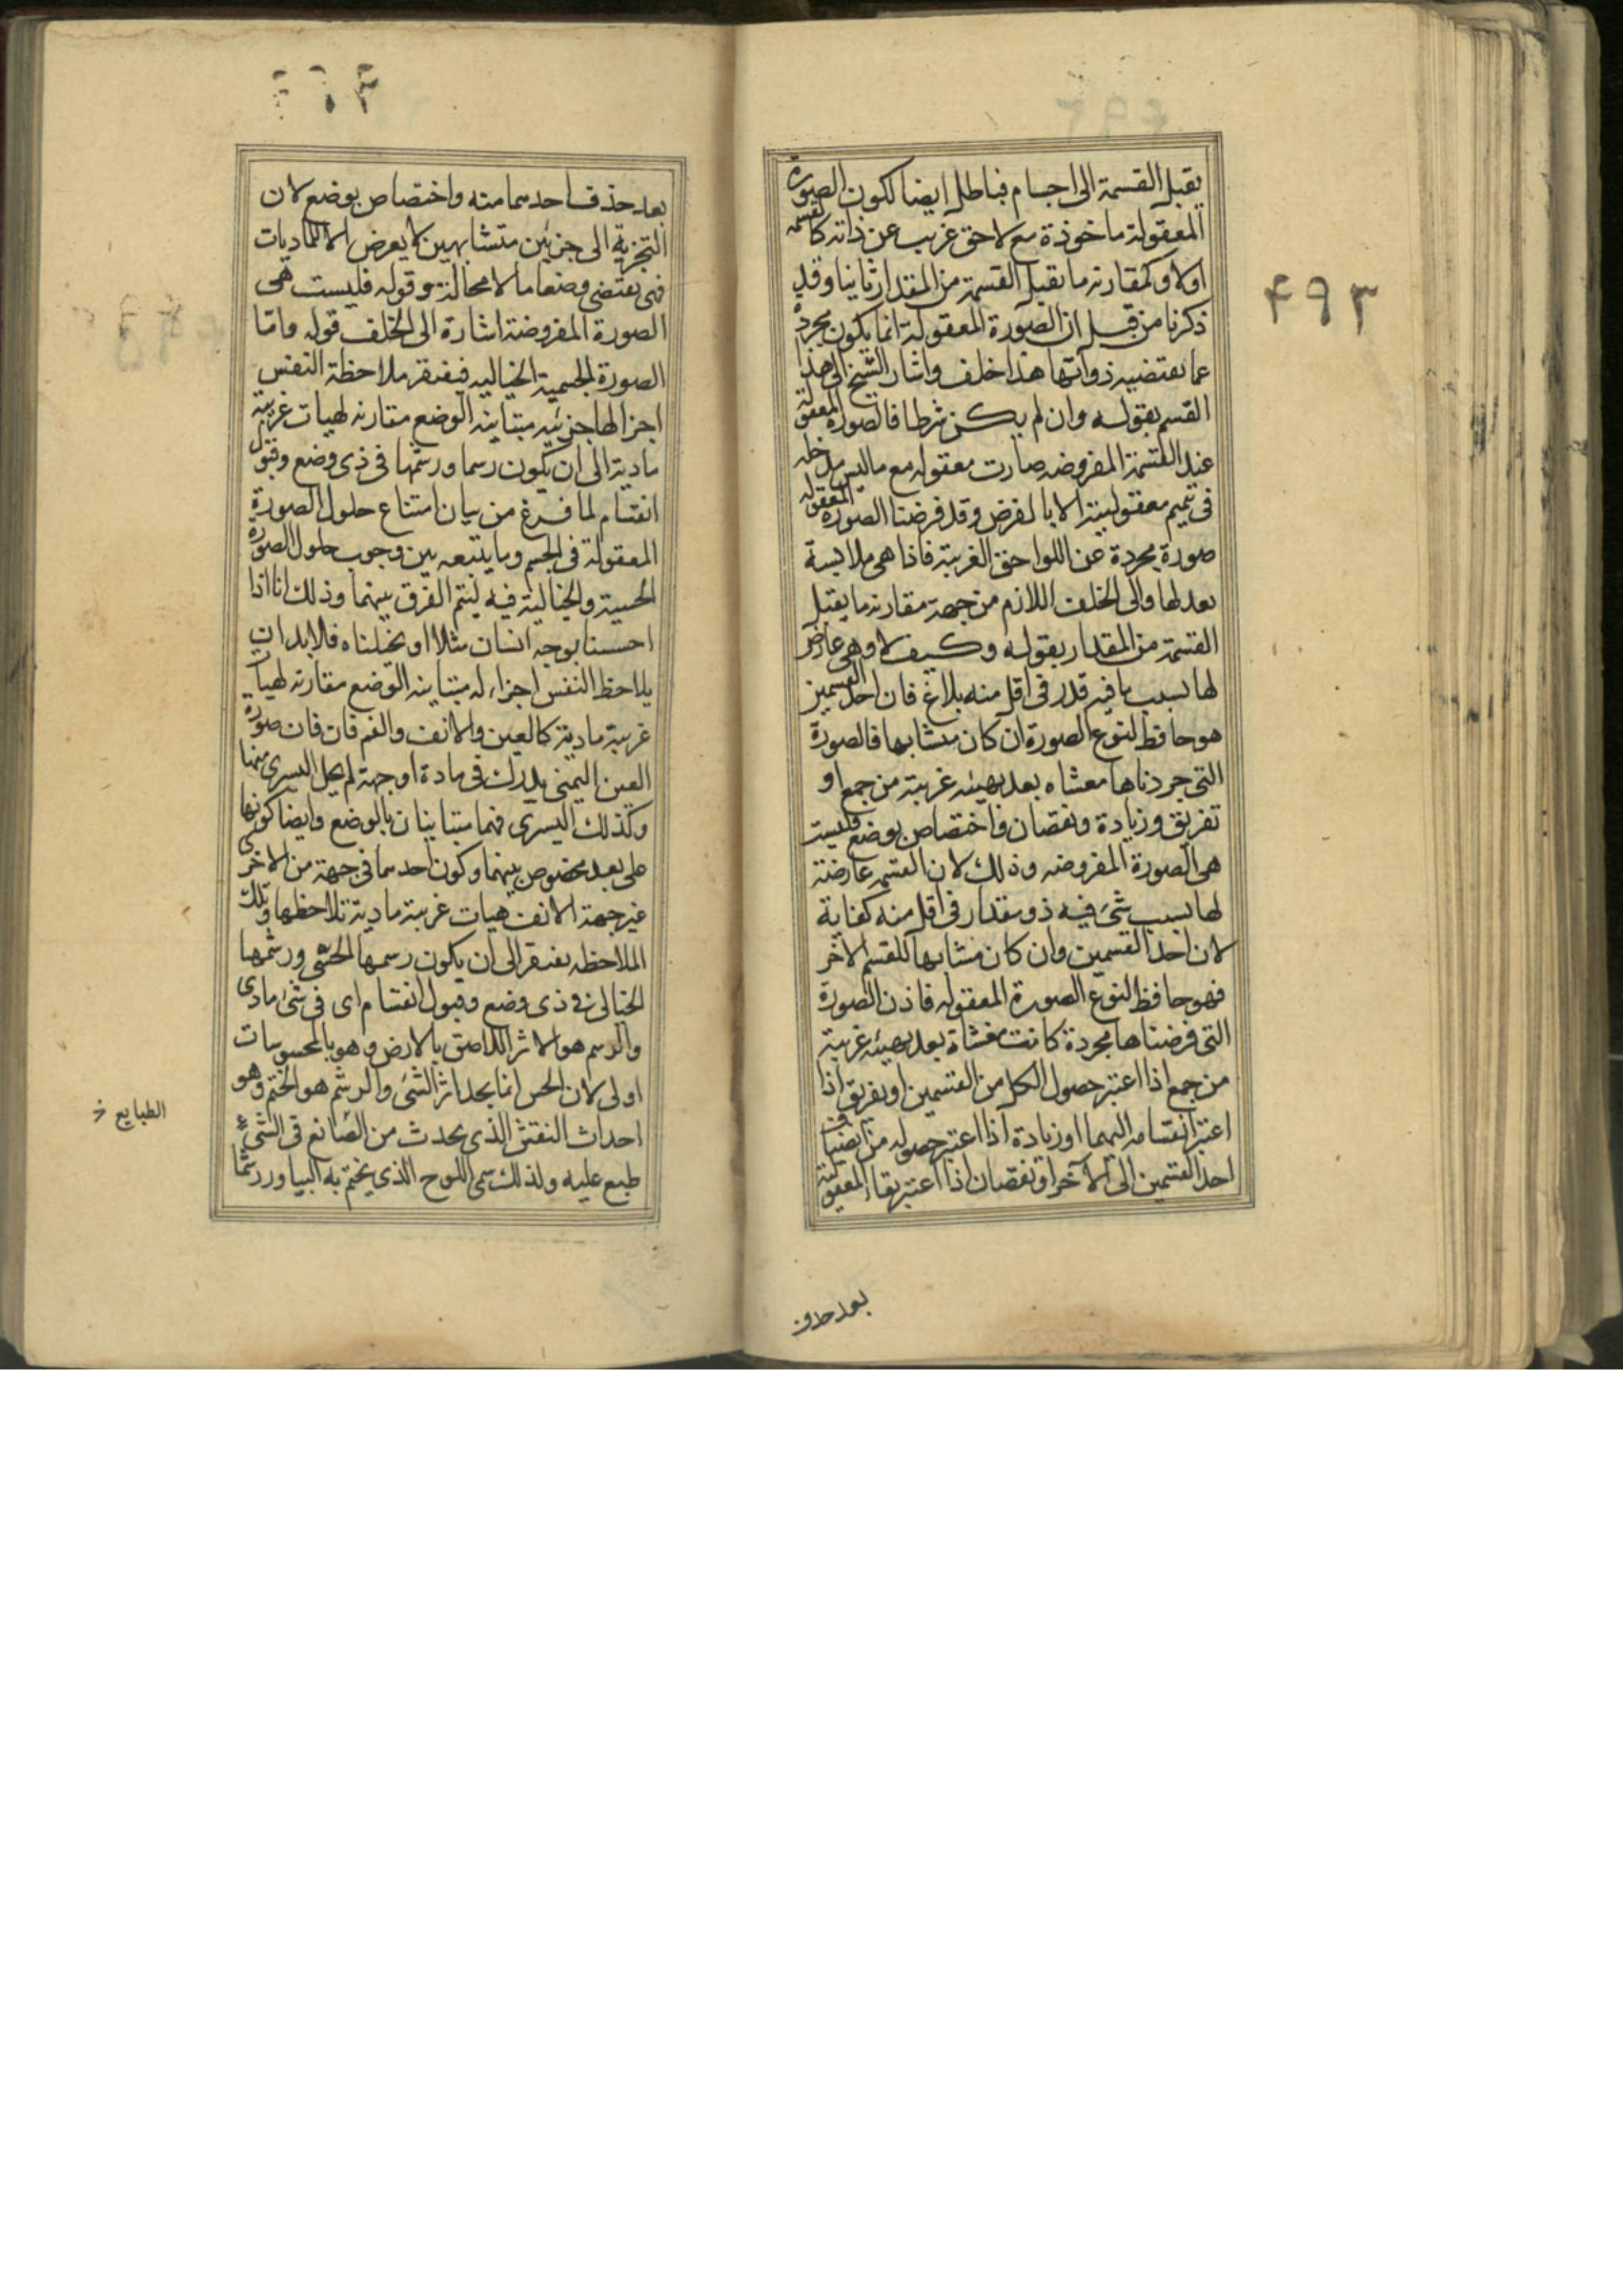 ۴۹۳
يقبل القسمة الى اجسام فباطل ايضا لكون الصورة
المعقولة ماخوذة مع لاحق غريب عن ذاته كالقسمه
اولا وكمقارنه ما يقبل القسمة من المقدار ثانيا وقد
ذكرنا من قبل ان الصورة المعقولة انما يكون مجردة
عما يقتضيه ذواتها هذا خلف واشار الشيخ الى هذا
القسم بقوله وان لم يكن شرطا فالصورة المعقولة
عند القسمة المفروضه صارت معقوله مع ما ليس مدخله
فى تتميم معقوليته الا بالفرض وقد فرضنا الصورة المعقوله
صورة مجردة عن اللواحق الغريبة فاذا هى ملابسة
بعد لها والى الخلف اللازم من جهة مقارنه ما يقبل
القسمة من المقدار بقوله وكيف لا وهى عارض
لها بسبب ما فيه قدر فى اقل منه بلاغ فان احد القسمين
هو حافظ لنوع الصورة ان كان متشابها فالصورة
التى جردناها مغشاه بعد بهيئه غريبة من جمع او
تفريق وزيادة ونقصان واختصاص بوضع فليست
هى الصورة المفروضه وذلك لان القسمه عارضة
لها بسبب شئ فيه ذو مقدار فى اقل منه كفاية
لان احد القسمين وان كان مشابها للقسم الاخر
فهو حافظ لنوع الصورة المعقوله فاذن الصورة
التى فرضناها مجردة كانت مغشاة بعد بهيئه غريبة
من جمع اذا اعتبر حصول الكل من القسمين او تفريق اذا
اعتبر انقسامه اليهما او زيادة اذا اعتبر حصوله من انضياف
احد القسمين الى الآخر او نقصان اذا اعتبر بقاء المعقولة
بعد حذف
بعد حذف احدهما منه واختصاص بوضع لان
التجزية الى جزئين متشابهين لا يعرض الا للماديات
فهى يقتضى وضعا ما لا محالة وقوله فليست هى
الصورة المفروضة اشارة الى الخلف قوله واما
الصورة الجسمية الخياليه فيفتقر ملاحظة النفس
اجزا لها جزئيه متباينه الوضع مقارنه لهيات غريبة
مادية الى ان يكون رسما ورشمها فى ذى وضع وقبول
انقسام لما فرغ من بيان امتناع حلول الصورة
المعقولة فى الجسم وما يتبعه بين وجوب حلول الصورة
الحسية والخيالية فيه ليتم الفرق بينهما وذلك انا اذا
احسسنا بوجه انسان مثلا او تخيلناه فلابد ان
يلاحظ النفس اجزاء له متباينه الوضع مقارنه لهيات
غريبة مادية كالعين والانف والفم فان صورة
العين اليمنى يدرك فى مادة او جهة لم يحل اليسرى فيها
وكذلك اليسرى فهما متباينان بالوضع وايضا كونها
على بعد مخصوص بينهما وكون احدهما فى جهة من الاخرى
غير جهة الانف هيات غريبة مادية تلاحظها وتلك
الملاحظه يفتقر الى ان يكون رسمها الحسى ورشمها
الخيالى فى ذى وضع وقبول انقسام اى فى شئ مادى
والرسم هو الاثر اللاصق بالارض وهو بالمحسوسات
اولى لان الحس انما يجد اثر الشئ والرشم هو الختم وهو
احداث النقش الذى يحدث من الصانع فى الشئ
طبع عليه ولذلك سمى اللوح الذى يختم به البيادر رشما
الطبايع خ